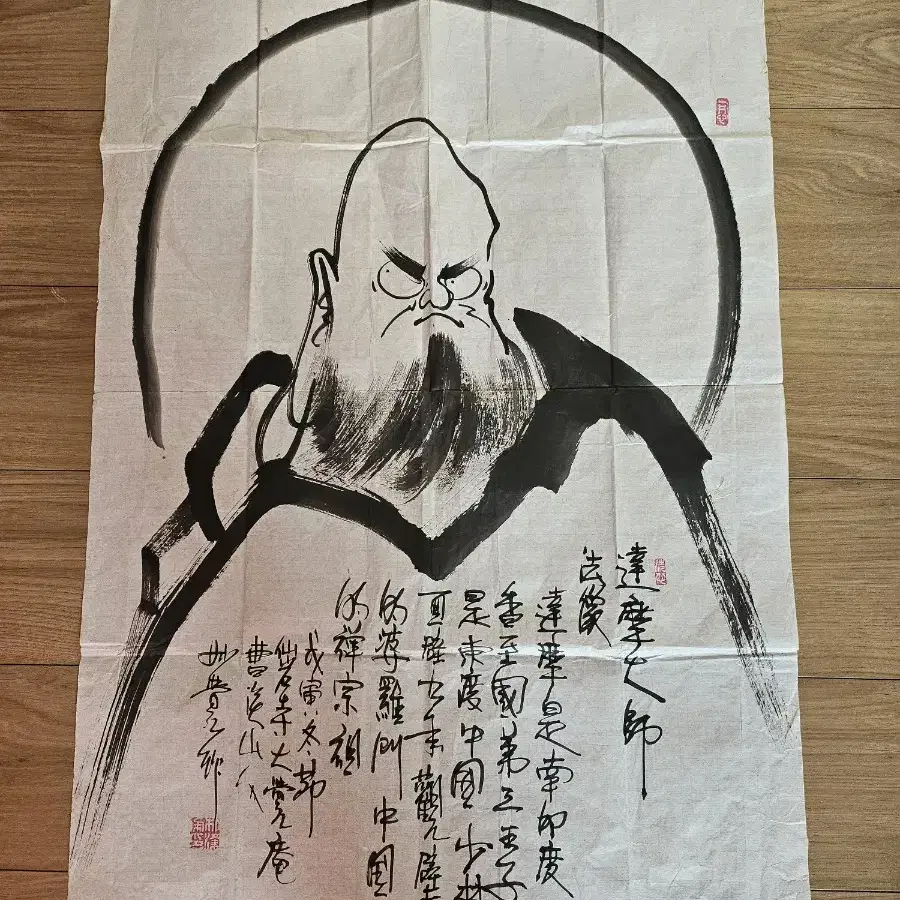 達摩大師
法
達摩是南印度
香至國第三王子
是東度中國少林
面壁九年觀壁
的婆羅門 中國
的禪宗祖
戊寅冬節
寺大覺庵
曹溪山人
妙覺